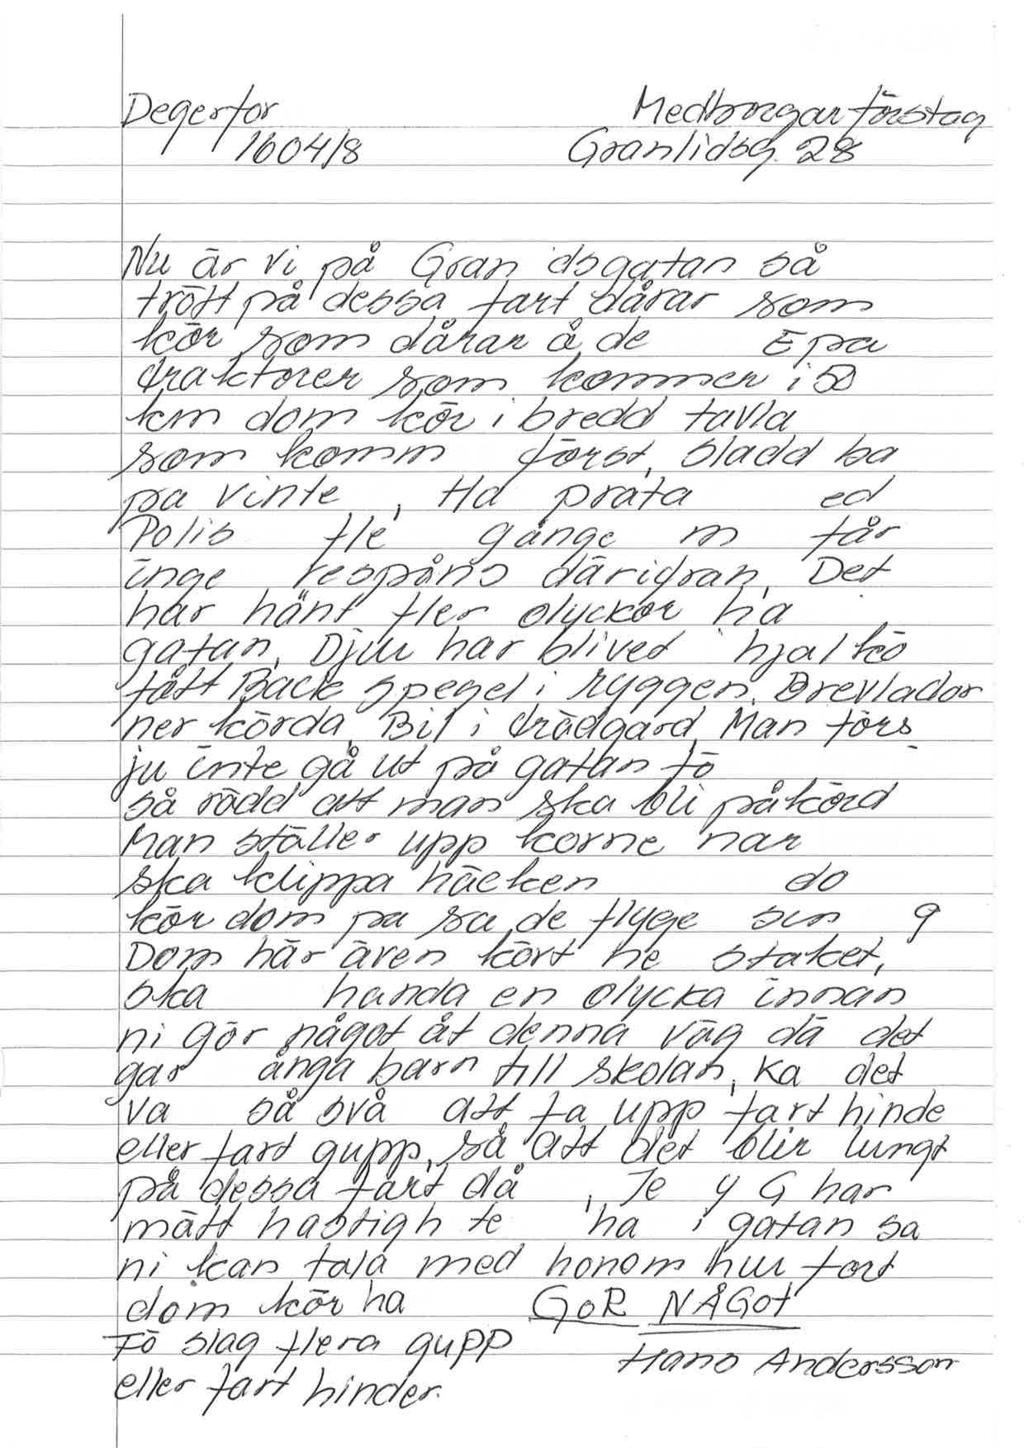 Degerfor Medborgarförslag
160418 Granlidsg. 28
Nu är vi på Gran idsgatan så
trött på dessa fart dårar som
kör som dårar å de Epa
traktorer som kommer i 50
km dom kör i bredd tavla
som komm först, sladd ba
pa vinte , Ha prata ed
Polis fle gånge m får
inge respåns därifran, Det
har hänt fler olyckor ha
gatan, Djur har blived hjal kö
fått Back spegel i ryggen. Brevlador
ner körda, Bil i trädgard, Man törs
ju inte gå ut på gatan fö
så rädd att man ska bli påkörd
Man ställer upp korne nar
ska klippa häcken do
kör dom pa sa de flyge sin g
Dom här även kört ne staket,
ska handa en olycka innan
ni gör något åt denna väg då det
gar ånga barn till skolan, Ka det
va så svå att fa upp fart hinde
eller fart gupp, så att det blir lungt
på dessa fart då , Te y G har
mätt hastigh te ha i gatan sa
ni kan tala med honom hur fort
dom kör ha GöR NÅGot
Fö slag flera gupp
eller fart hinder. Hans Andersson